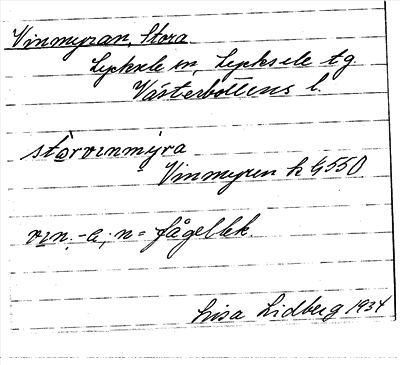 Vinmyran, Stora
Lycksele sn, Lycksele tg.
Västerbottens l.
storvinmyra
Vinmyren h G550
vin, -a, n = fågellek.
Lisa Lidberg 1934